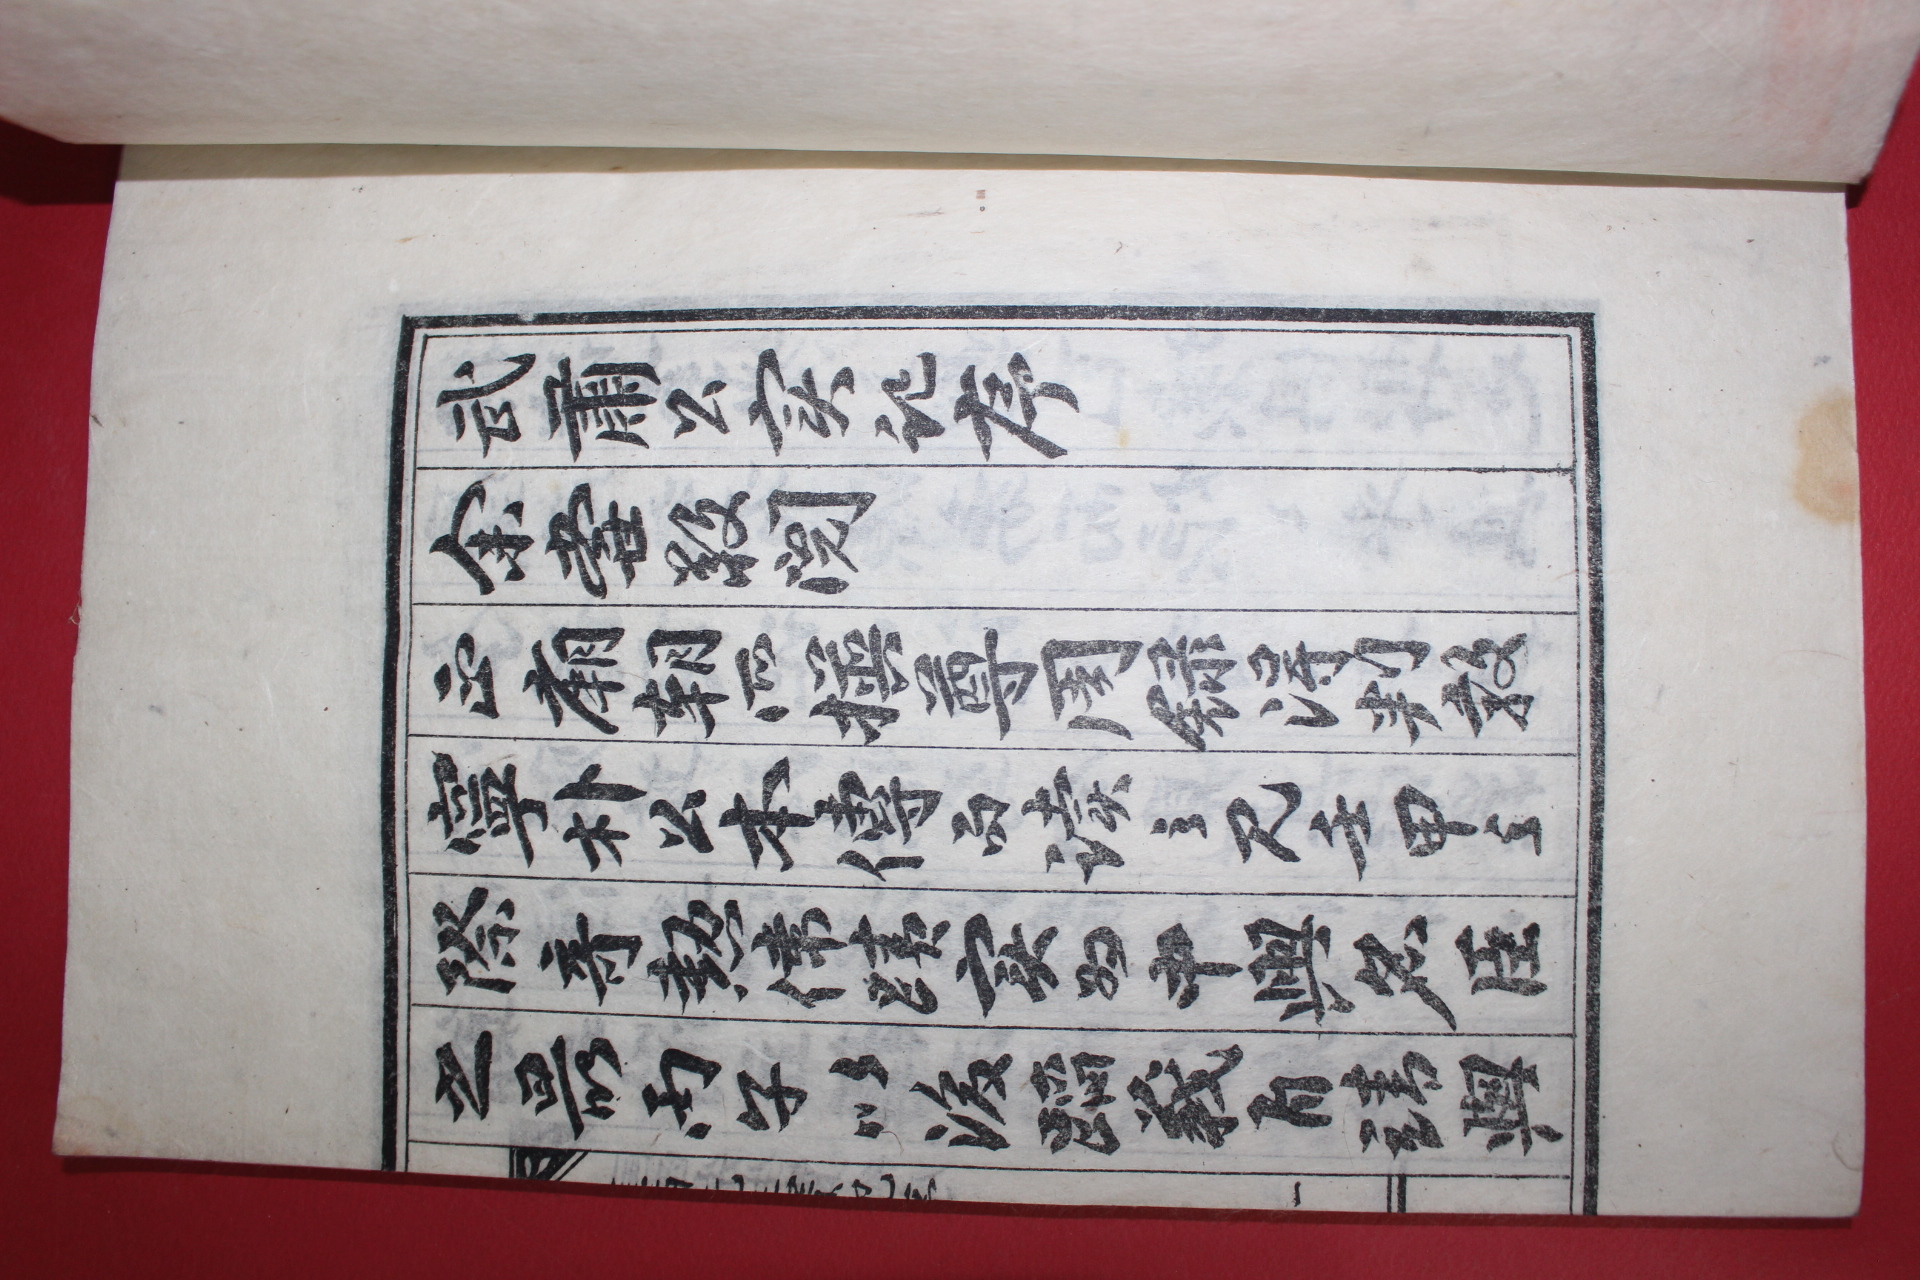 武肅公实記序
余嘗敬閱
正廟朝所撰尊周録得判敦
寧朴公本傳而读之見壬甲之
際奇勲偉蹟实为中興名臣
之最丙子以後蹈義自靖與
一